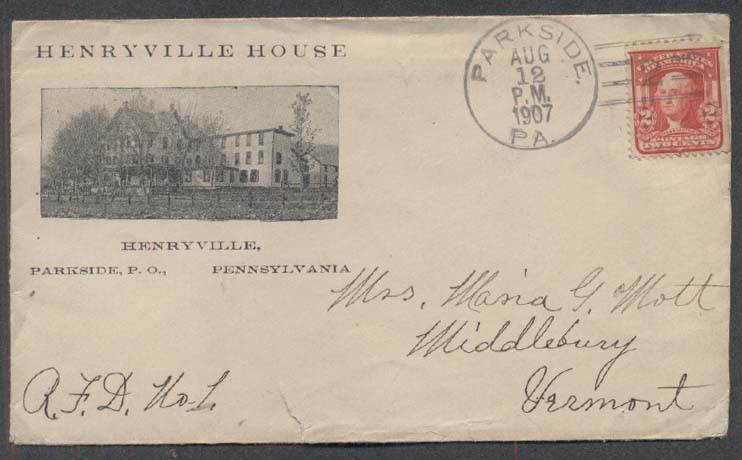 HENRYVILLE HOUSE
HENRYVILLE,
PARKSIDE, P. O., PENNSYLVANIA
PARKSIDE,
AUG
12
P.M.
1907
PA.
UNITED STATES
OF AMERICA
2 2
POSTAGE
TWO CENTS
Mrs. Maria G. Mott
Middlebury
Vermont
R.F.D. No 1.